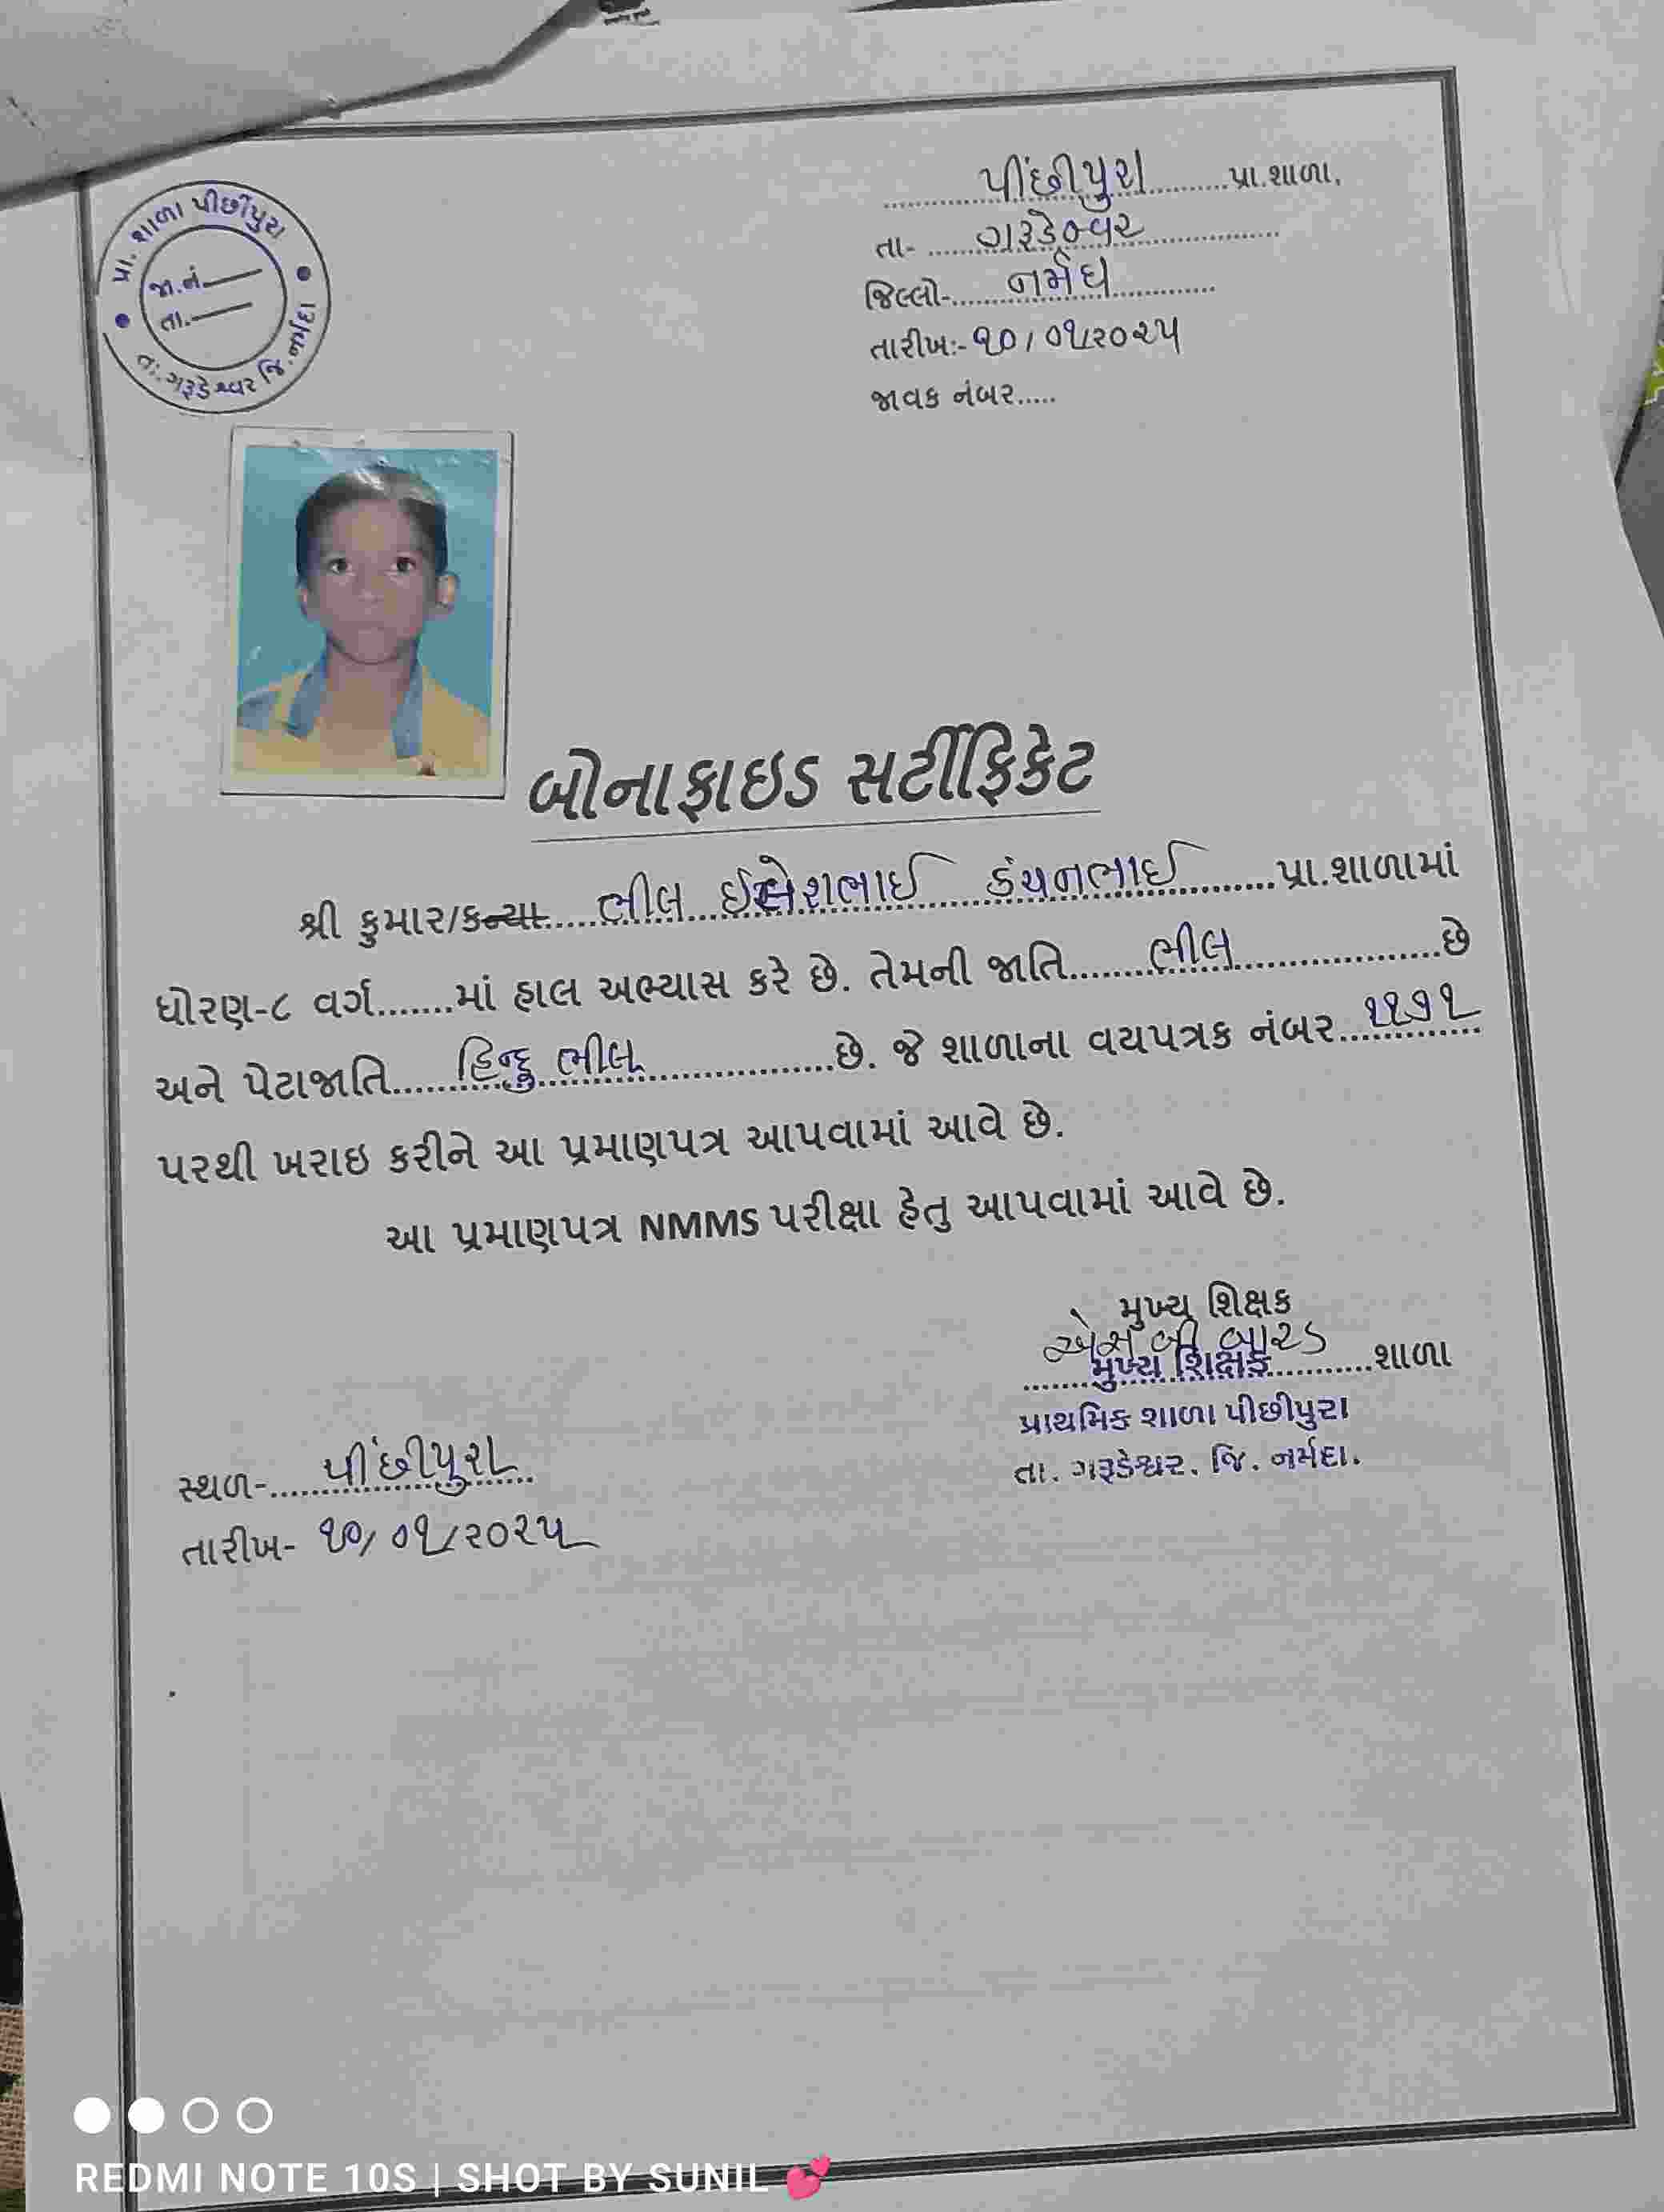 પીંછીપુરા પ્રા.શાળા,
તા- ગરૂડેશ્વર
જિલ્લો- નર્મદા
તારીખ:- ૧૦/૦૧/૨૦૨૫
જાવક નંબર.....
પ્રા. શાળા પીછીપુરા
જા.નં.
તા.
તા. ગરૂડેશ્વર જિ. નર્મદા
બોનાફાઇડ સર્ટીફિકેટ
શ્રી કુમાર/કન્યા ભીલ કંચનભાઈ પ્રા.શાળામાં
ધોરણ-૮ વર્ગ.......માં હાલ અભ્યાસ કરે છે. તેમની જાતિ ભીલ છે
અને પેટાજાતિ હિન્દુ ભીલ છે. જે શાળાના વયપત્રક નંબર
પરથી ખરાઇ કરીને આ પ્રમાણપત્ર આપવામાં આવે છે.
આ પ્રમાણપત્ર NMMS પરીક્ષા હેતુ આપવામાં આવે છે.
મુખ્ય શિક્ષક
બી બારડ
મુખ્ય શિક્ષક શાળા
પ્રાથમિક શાળા પીછીપુરા
તા. ગરૂડેશ્વર. જિ. નર્મદા.
સ્થળ- પીંછીપુરા
તારીખ- ૧૦/૦૧/૨૦૨૫
REDMI NOTE 10S | SHOT BY SUNIL 💕